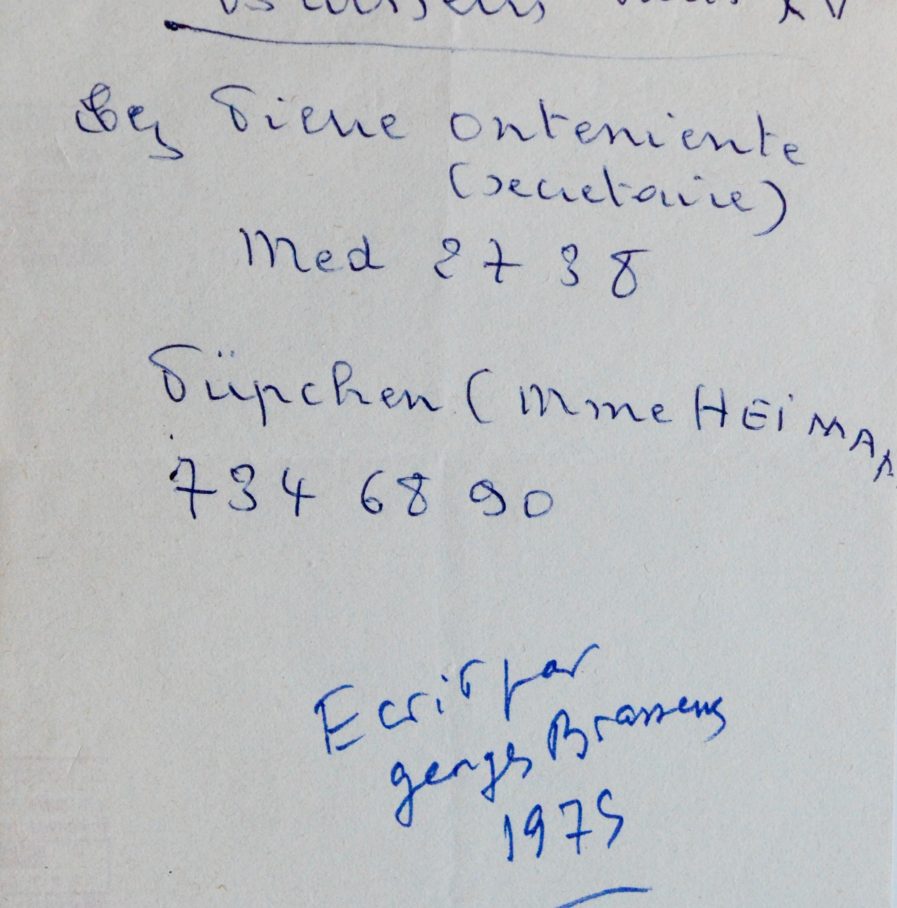 XV
chez Pierre onteniente
(secretaire)
Med 27 38
Püpchen (Mme HEiMAN
734 68 90
Ecrit par
georges Brassens
1975